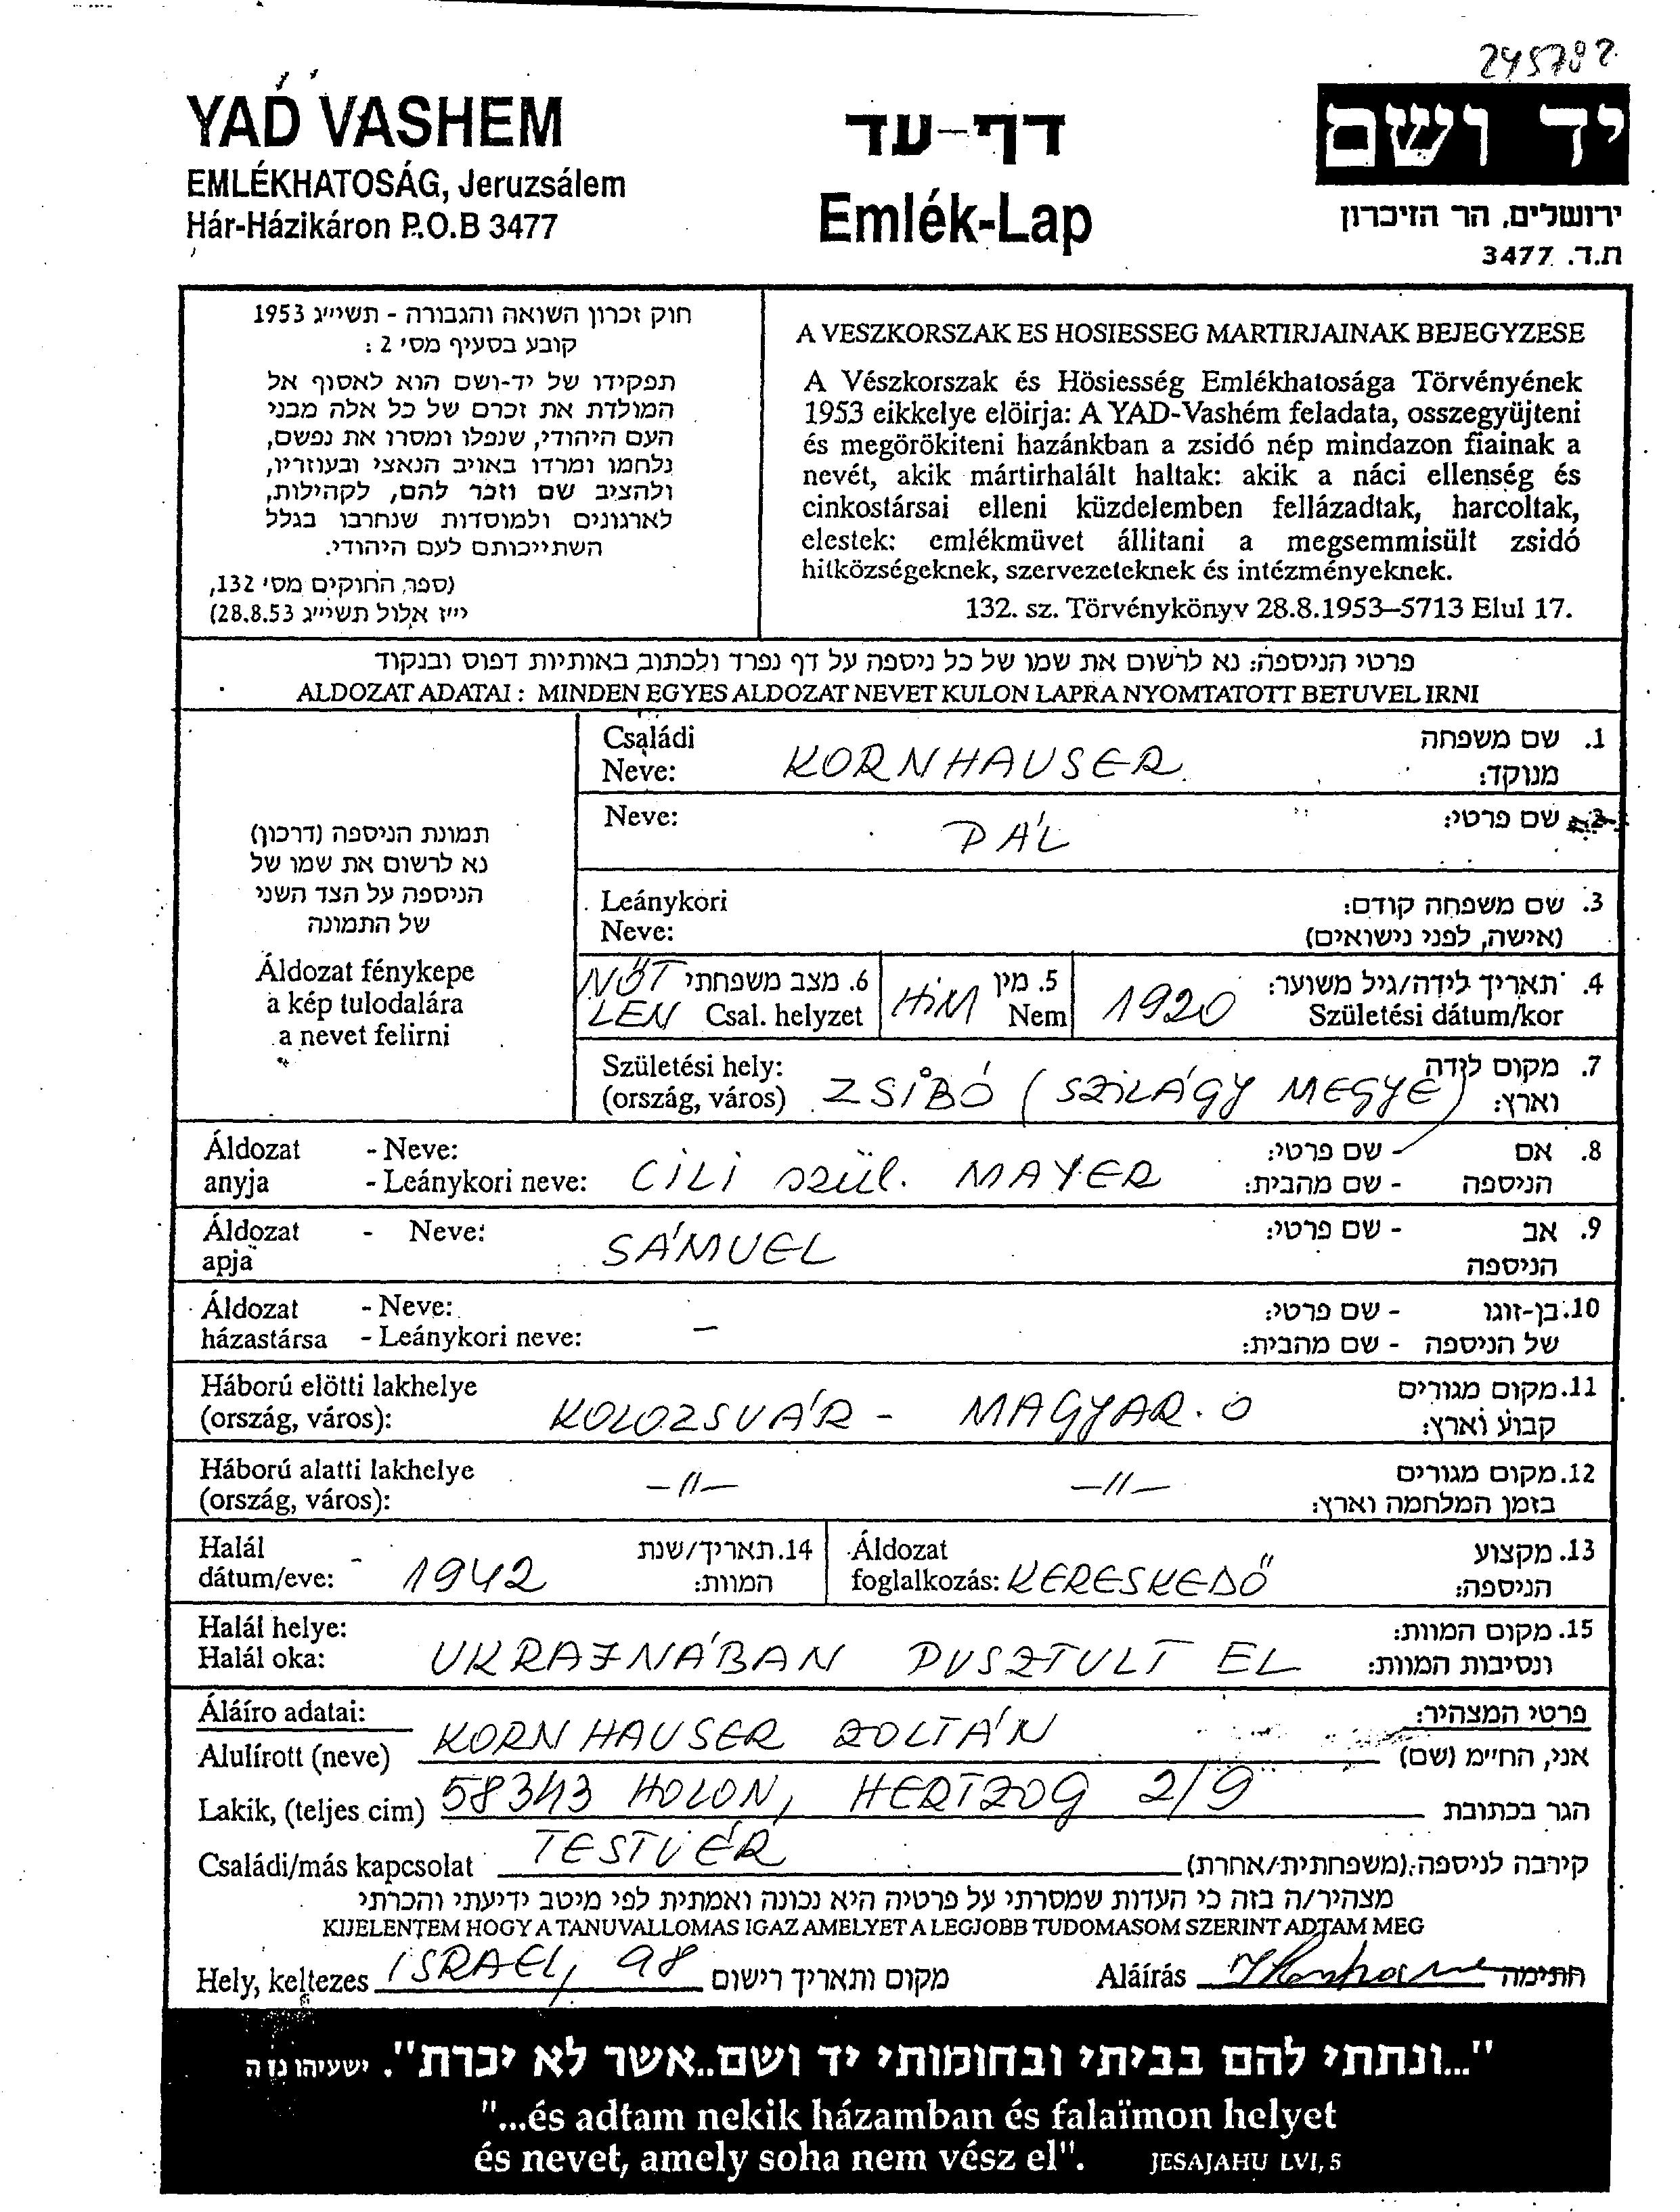 245782
YAD VASHEM
EMLÉKHATOSÁG, Jeruzsálem
Hár-Házikáron P.O.B 3477
דף-עד
Emlék-Lap
יד ושם
ירושלים, הר הזיכרון
ת.ד. 3477
חוק זכרון השואה והגבורה - תשי״ג 1953
קובע בסעיף מס׳ 2 :
תפקידו של יד-ושם הוא לאסוף אל
המולדת את זכרם של כל אלה מבני
העם היהודי, שנפלו ומסרו את נפשם,
נלחמו ומרדו באויב הנאצי ובעוזריו,
ולהציב שם וזכר להם, לקהילות,
לארגונים ולמוסדות שנחרבו בגלל
השתייכותם לעם היהודי.
(ספר החוקים מס׳ 132,
י״ז אלול תשי״ג 28.8.53)
A VESZKORSZAK ES HOSIESSEG MARTIRJAINAK BEJEGYZESE
A Vészkorszak és Hösiesség Emlékhatosága Törvényének
1953 eikkelye elöirja: A YAD-Vashém feladata, osszegyüjteni
és megörökiteni hazánkban a zsidó nép mindazon fiainak a
nevét, akik mártirhalált haltak: akik a náci ellenség és
cinkostársai elleni küzdelemben fellázadtak, harcoltak,
elestek: emlékmüvet állitani a megsemmisült zsidó
hitközségeknek, szervezeteknek és intézményeknek.
132. sz. Törvénykönyv 28.8.1953–5713 Elul 17.
פרטי הניספה: נא לרשום את שמו של כל ניספה על דף נפרד ולכתוב באותיות דפוס ובנקוד
ALDOZAT ADATAI : MINDEN EGYES ALDOZAT NEVET KULON LAPRA NYOMTATOTT BETUVEL IRNI
תמונת הניספה (דרכון)
נא לרשום את שמו של
הניספה על הצד השני
של התמונה
Áldozat fénykepe
a kép tulodalára
a nevet felirni
Családi
Neve:
KORNHAUSER
1. שם משפחה
מנוקד:
Neve:
PÁL
2. שם פרטי:
Leánykori
Neve:
3. שם משפחה קודם:
(אישה, לפני נישואים)
NŐT
LEN
6. מצב משפחתי
Csal. helyzet
HIM
5. מין
Nem
1920
4. תאריך לידה/גיל משוער:
Születési dátum/kor
Születési hely:
(ország, város)
ZSIBÓ (SZILÁGY MEGYE)
7. מקום לידה
וארץ:
Áldozat - Neve:
anyja - Leánykori neve:
CILI szül. MAYER
8. אם - שם פרטי:
הניספה - שם מהבית:
Áldozat - Neve:
apja
SÁMUEL
9. אב - שם פרטי:
הניספה
Áldozat - Neve:
házastársa - Leánykori neve:
–
10. בן-זוגו - שם פרטי:
של הניספה - שם מהבית:
Háború elötti lakhelye
(ország, város):
KOLOZSVÁR - MAGYAR. O
11. מקום מגורים
קבוע וארץ:
Háború alatti lakhelye
(ország, város):
–//– –//–
12. מקום מגורים
בזמן המלחמה וארץ:
Halál
dátum/eve:
1942
14. תאריך/שנת
המוות:
Áldozat
foglalkozás: KERESKEDŐ
13. מקצוע
הניספה:
Halál helye:
Halál oka:
UKRAJNÁBAN PUSZTULT EL
15. מקום המוות:
ונסיבות המוות:
Áláíro adatai:
פרטי המצהיר:
Alulírott (neve) KORNHAUSER ZOLTÁN
אני, החיימ (שם)
Lakik, (teljes cim) 58343 HOLON, HERTZOG 2/9
הגר בכתובת
Családi/más kapcsolat TESTVÉR
קירבה לניספה (משפחתית/אחרת)
מצהיר/ה בזה כי העדות שמסרתי על פרטיה היא נכונה ואמתית לפי מיטב ידיעתי והכרתי
KIJELENTEM HOGY A TANUVALLOMAS IGAZ AMELYET A LEGJOBB TUDOMASOM SZERINT ADTAM MEG
Hely, keltezes ISRAEL, 98 מקום ותאריך רישום
Aláírás חתימה
"...ונתתי להם בביתי ובחומותי יד ושם..אשר לא יכרת". ישעיהו נו ה
"...és adtam nekik házamban és falaïmon helyet
és nevet, amely soha nem vész el". JESAJAHU LVI, 5